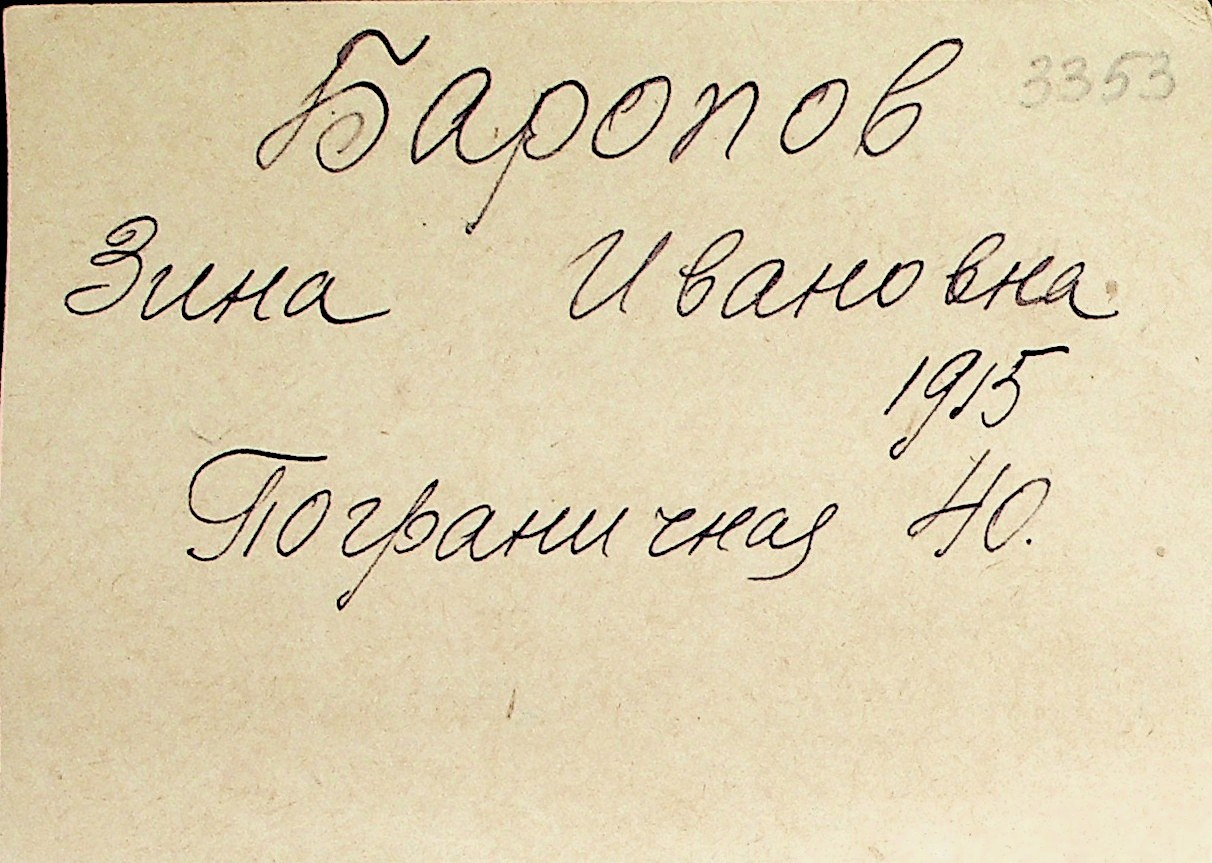 Баропов 3353
Зина Ивановна
1915
Пограничная 40.